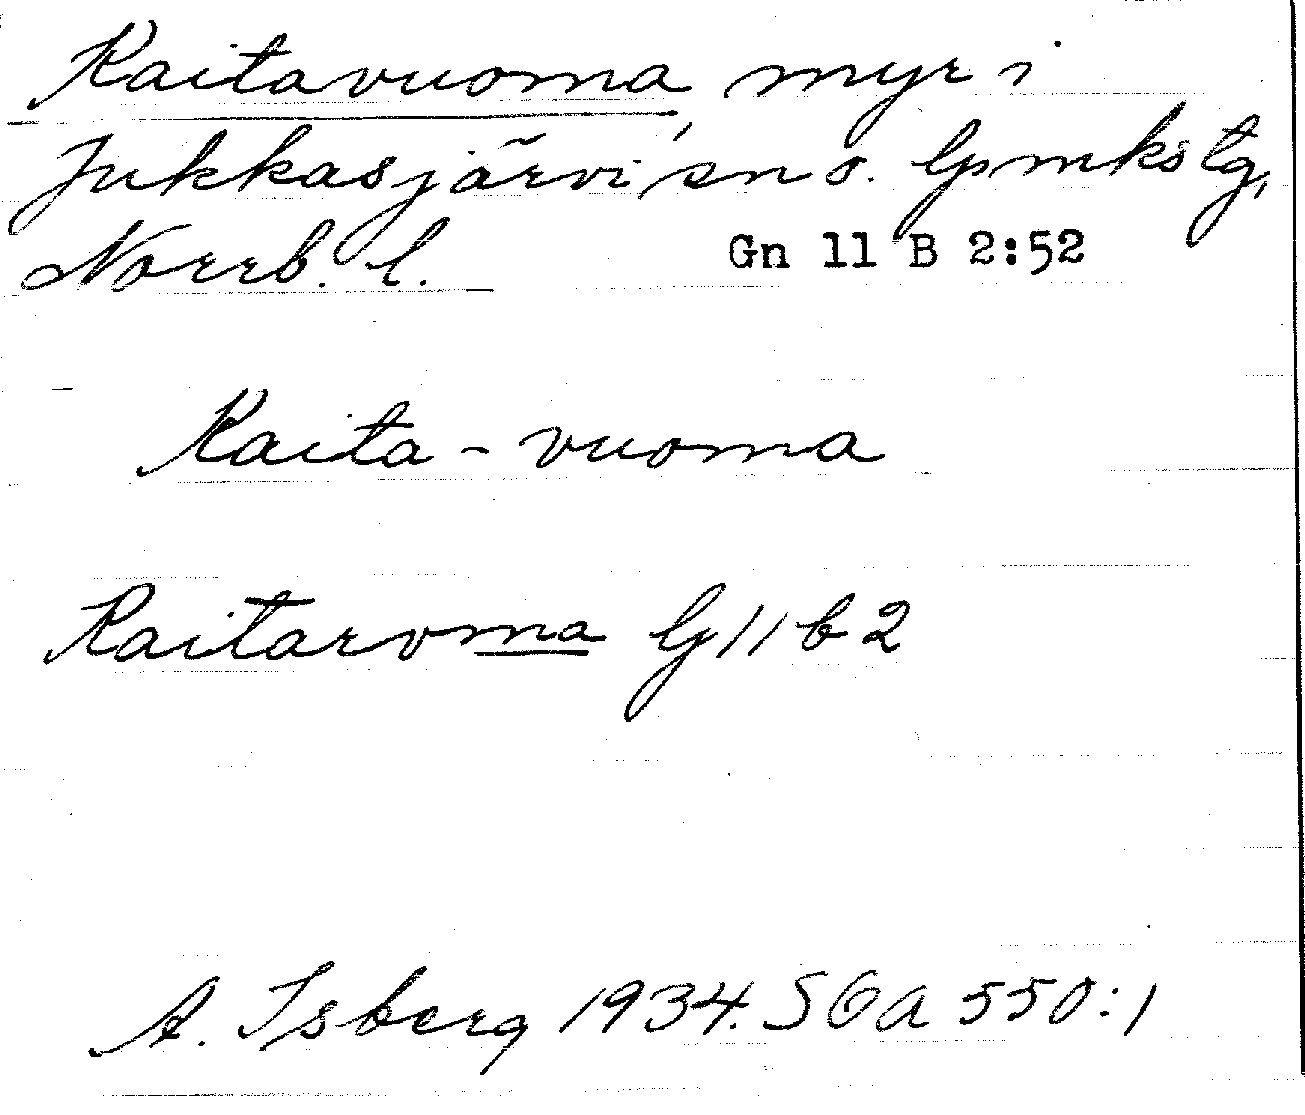 Kaitavuoma, myr i
Jukkasjärvi sn o. lpmkstg,
Norrb. l. Gn 11 B 2:52
Kaita-vuoma
Kaitarvoma G 11 b 2
A. Isberg 1934. SOA 550:1